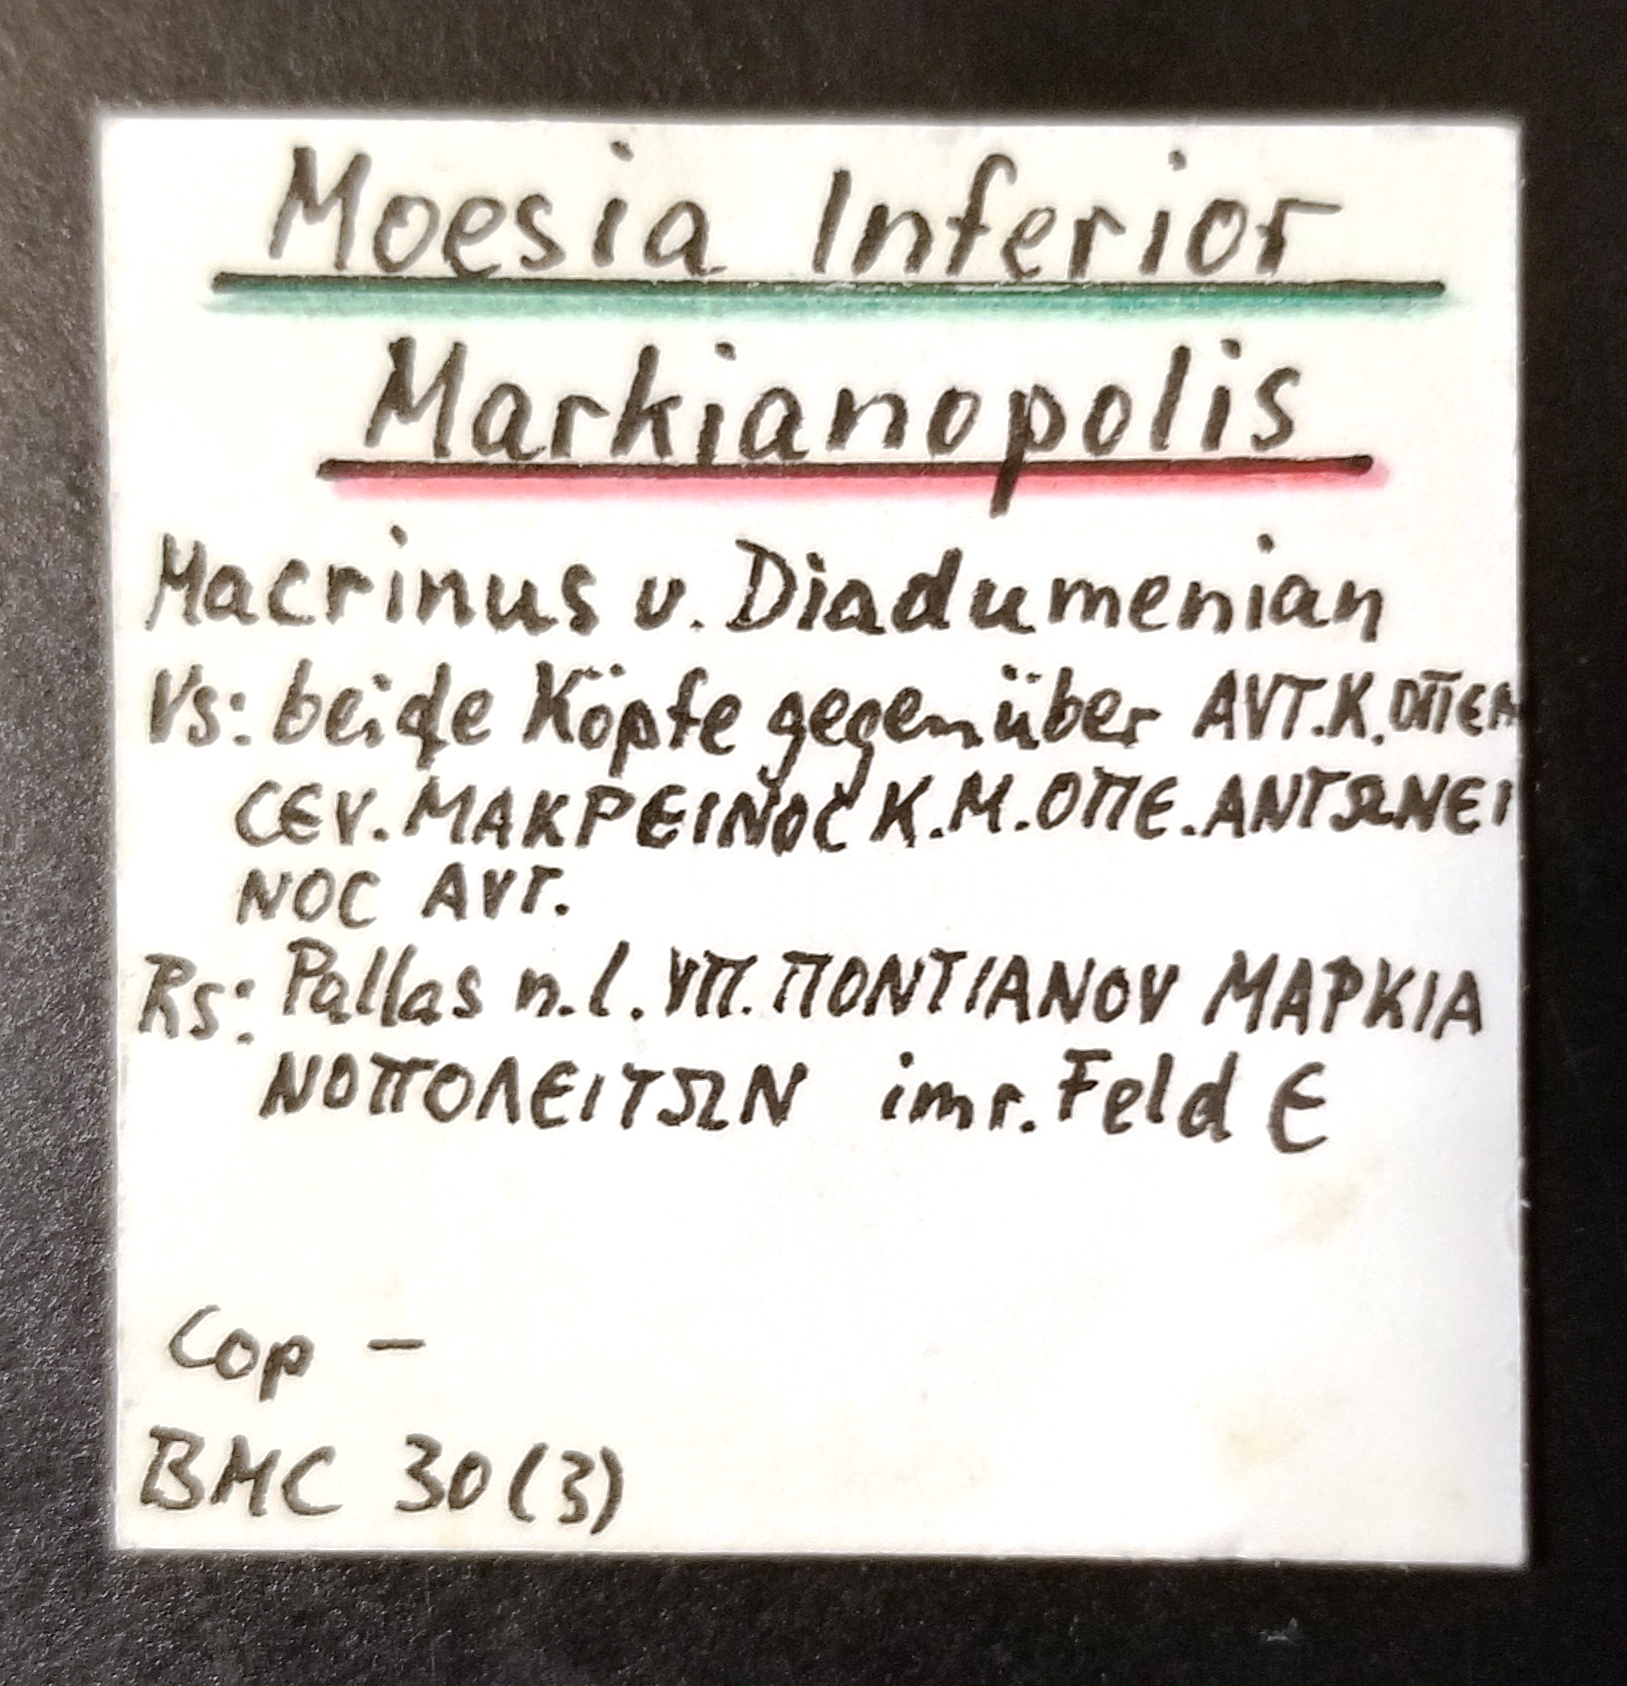 Moesia Inferior
Markianopolis
Macrinus u. Diadumenian
Vs: beide Köpfe gegenüber AVT.K.OΠEΛ
CEV. MAKPEINOC K.M.OΠE.ANTΩNEI
NOC AVT.
Rs: Pallas n.l. VΠ.ΠONTIANOV MAPKIA
NOΠOΛEITΩN im r. Feld E
Cop –
BMC 30(3)